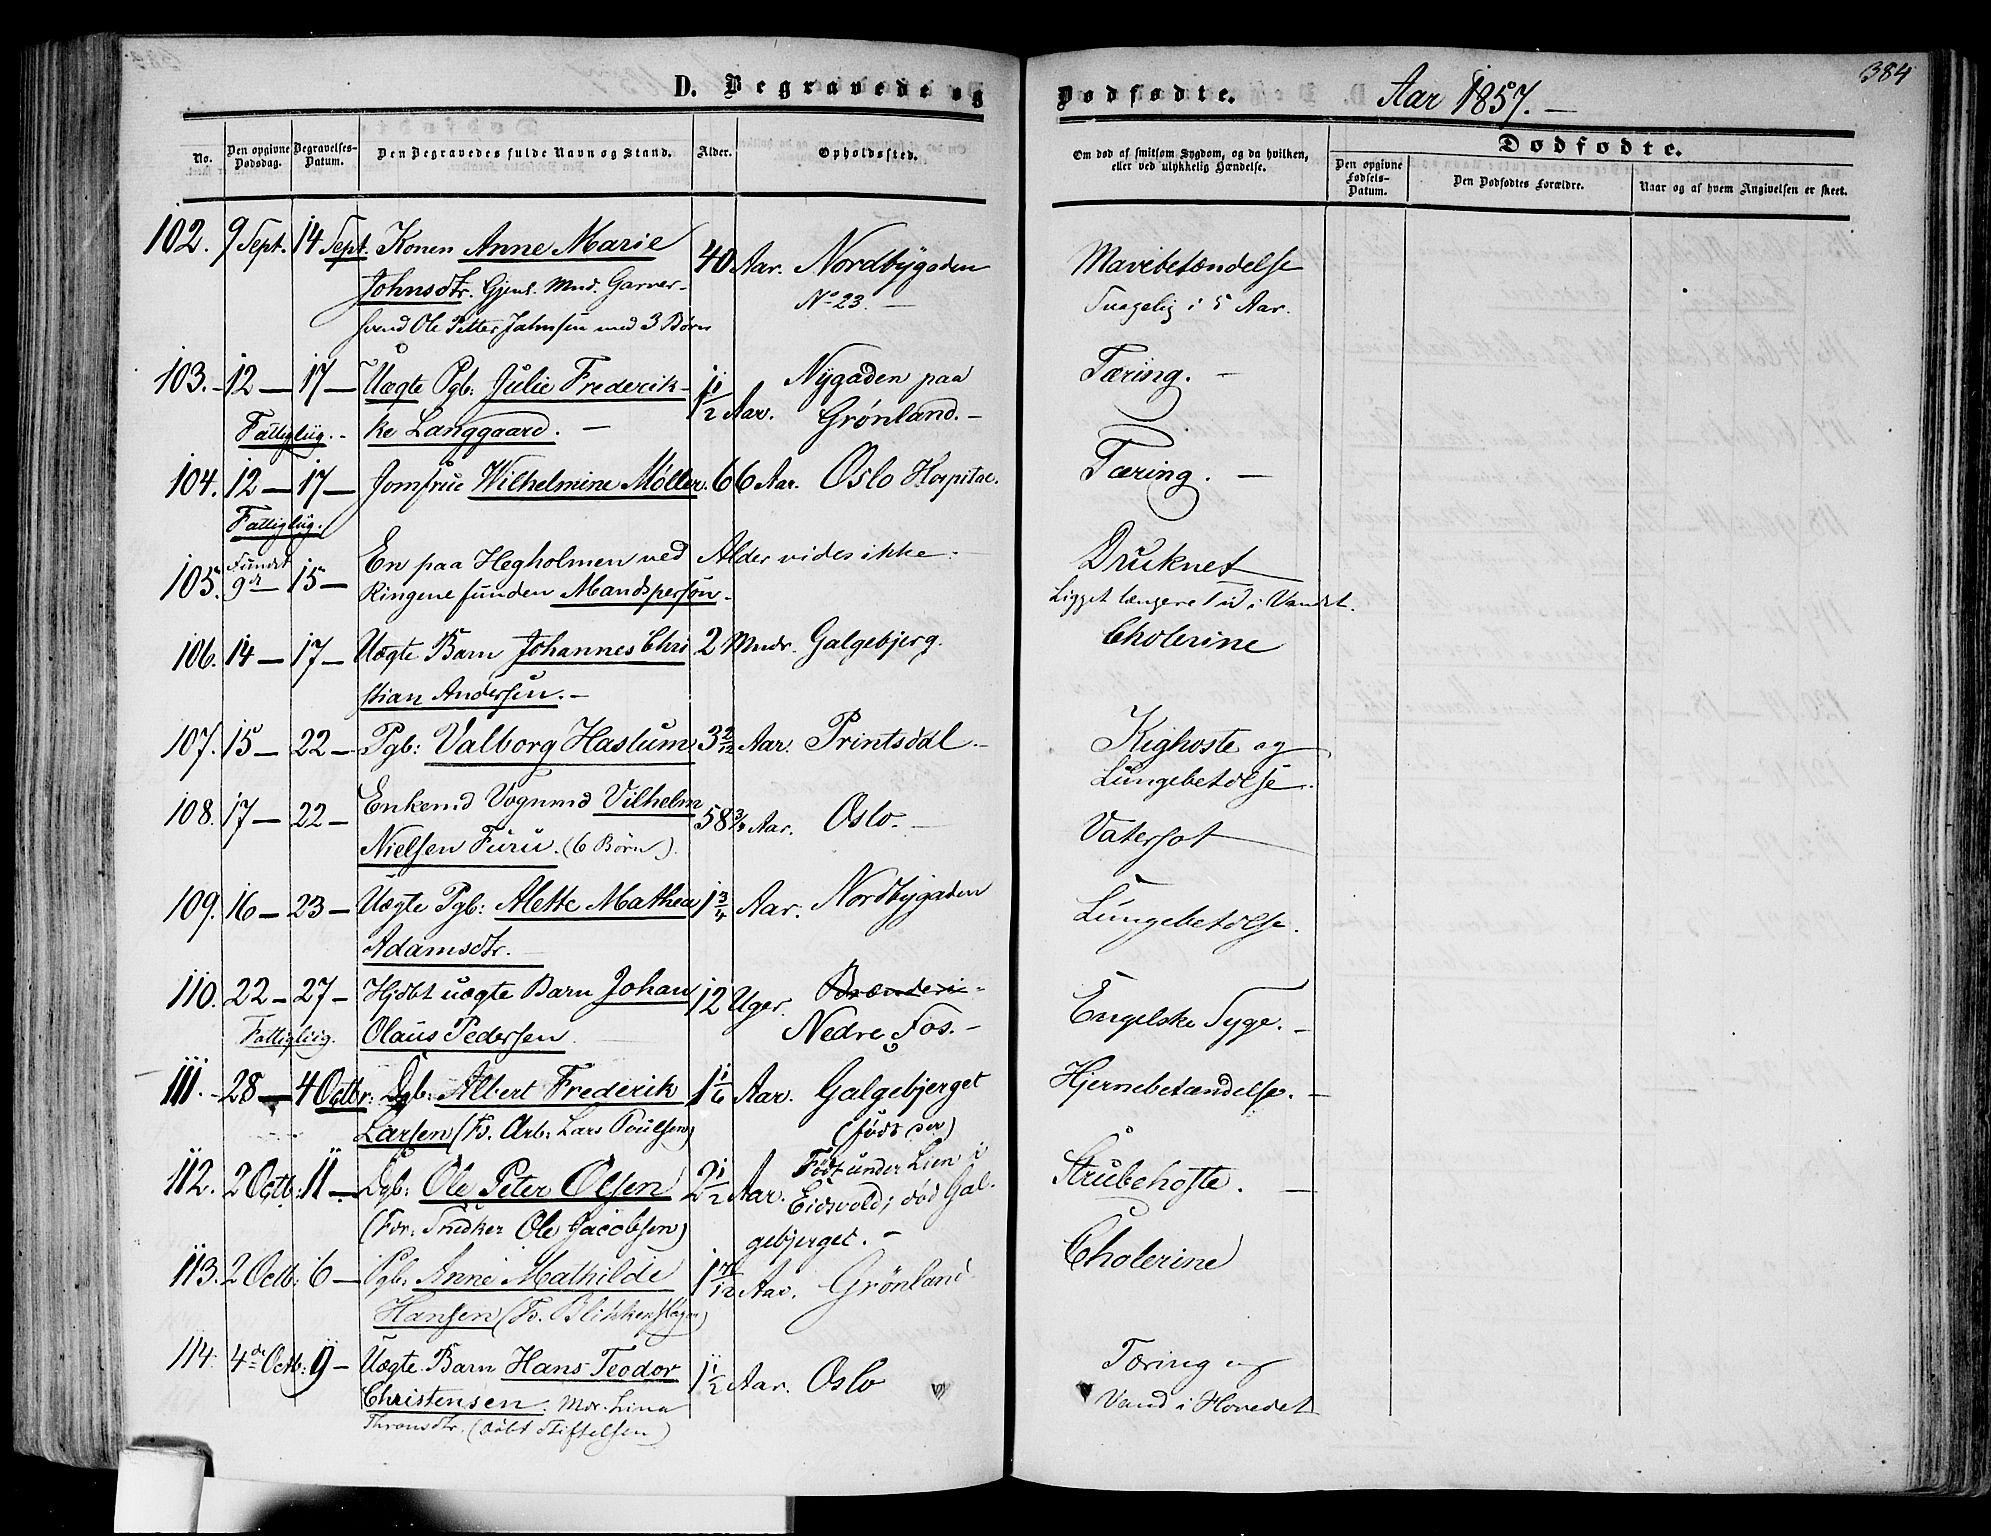 384
D. Begravede og Dødfødte. Aar 1857.—
No.
Den opgivne Dødsdag.
Begravelses-Datum.
Den Begravedes fulde Navn og Stand.
Alder.
Opholdssted.
Om død af smitsom Sygdom, og da hvilken, eller ved ulykkelig Hændelse.
Dødfødte.
Den opgivne Fødsels-Datum.
Den Dødfødtes Forældre.
Naar og af hvem Angivelsen er skeet.
102. 9 Sept. 14 Sept. Konen Anne Marie 40 Aar. Nordbygaden Mavebetændelse
Johnsdtr. Gjenl. Md. Garver- No 23.— Svagelig i 5 Aar.
svend Ole Petter Jahnsen med 3 Børn
103.- 12 — 17 — Uægte Pgb: Julie Frederik- 1 1/2 Aar. Nygaden paa Tæring. —
Fattigliig.- ke Langgaard. — Grønland.-
104. 12 — 17 — Jomfrue Wilhelmine Møller. 66 Aar. Oslo Hospital. Tæring. —
Fattigliig.
105. Fundet 9de 15 — En paa Hegholmen ved Alder vides ikke. Druknet
Ringene funden Mandsperson. Ligget længere Tid i Vandet.
106. 14 — 17 — Uægte Barn Johannes Chri 2 Mndr. Galgebjerg. Cholerine
stian Andersen.—
107. 15 — 22 — Pgb: Valborg Haslum 3 2/12 Aar. Printsdal.- Kighoste og
Lungebetdlse.
108. 17 — 22 — Enkemd Vognmd Vilhelm 58 3/4 Aar. Oslo.— Vatersot
Nielsen Furu. (6 Børn).
109. 16 — 23 — Uægte Pgb: Alette Mathea 1 3/4 Aar. Nordbygaden Lungebetdlse.
Adamsdtr.
110. 22 — 27 — Hjdbt uægte Barn Johan 12 Uger. Brænderi- Engelske Syge.—
Fattigliig. Olaus Pedersen Nedre Fos.—
111.- 28 — 4 Octbr: Dgb: Albert Frederik 1 1/6 Aar. Galgebjerget Hjernebetændelse.—
Larsen (F. Arb: Lars Poulsen) (født der)
112. 2 Octb: 11 — Dgb: Ole Peter Olsen 2 1/2 Aar. Født under Lien i Strubehoste. —
(For: Snedker Ole Jacobsen) Eidsvold; død Gal-
gebjerget.—
113. 2 Octb: 6 — Pgb: Anne Mathilde 1 7/12 Aar. Grønland Cholerine
Hansen (F. Blikkenslager)
114. 4de Octb: 9 — Uægte Barn Hans Teodor 1 1/2 Aar. Oslo Tæring og
Christensen. Mdr. Lina Vand i Hovedet
Thronsdtr. (døbt Stiftelsen)